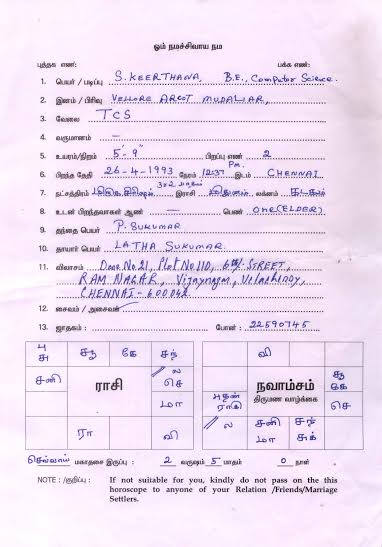 ஓம் நமச்சிவாய நம
புத்தக எண்: பக்க எண்:
1. பெயர் / படிப்பு S. KEERTHANA, B.E., Computer Science.
2. இனம் / பிரிவு VELLORE ARCOT MUDALIAR,
3. வேலை TCS
4. வருமானம் —
5. உயரம்/நிறம் 5'-9" பிறப்பு எண் 2
6. பிறந்த தேதி 26-4-1993 நேரம் 12:37 P.m. இடம் CHENNAI
7. நட்சத்திரம் மிருகசீரிஷம் 3ஆம் பாதம் இராசி மிதுனம் லக்னம் கடகம்
8. உடன் பிறந்தவர்கள் ஆண் — பெண் ONE(ELDER)
9. தந்தை பெயர் P. SUKUMAR
10. தாயார் பெயர் LATHA SUKUMAR
11. விலாசம் Door No.21, Plot No 110, STREET,
RAM NAGAR, Vijaynagar, Velachery,
CHENNAI-600042
12. சைவம் / அசைவம்
13. ஜாதகம் : போன் : 22590745
பு சு சூ கே சந்
சனி ராசி ல செ
மா
ரா வி
வி
நவாம்சம் சூ கே
திருமண வாழ்க்கை
புதன் ராகு செ
ல சனி மா சந் சுக்
செவ்வாய் மகாதசை இருப்பு : 2 வருஷம் 5 மாதம் 0 நாள்
NOTE : /குறிப்பு : If not suitable for you, kindly do not pass on the this
horoscope to anyone of your Relation /Friends/Marriage
Settlers.